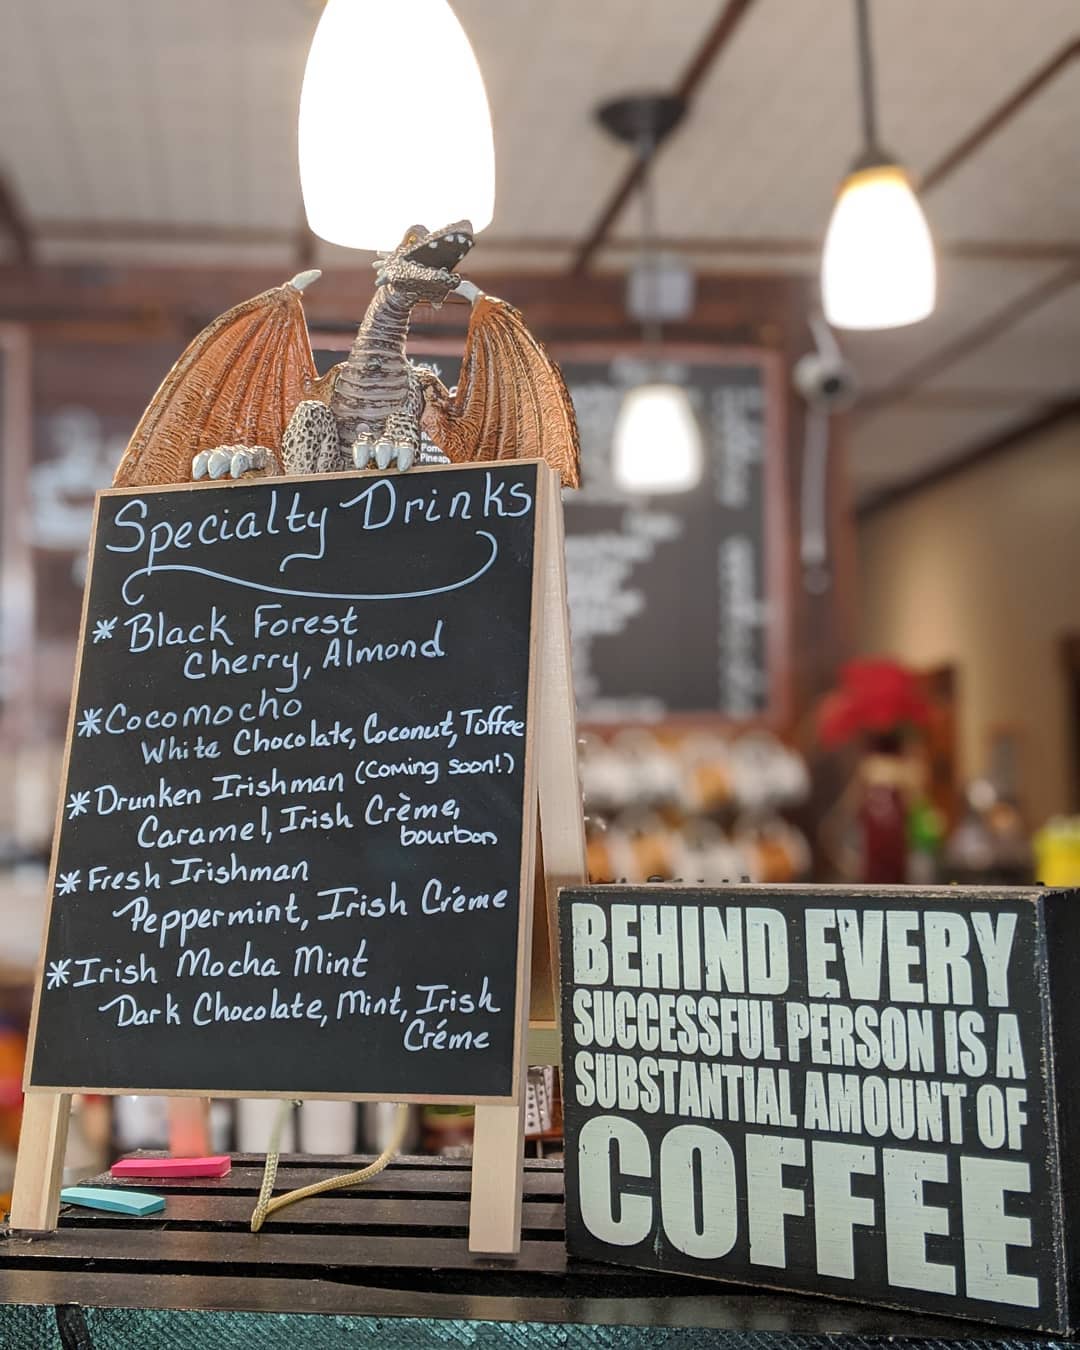 Specialty Drinks
* Black Forest
Cherry, Almond
* Cocomocho
White Chocolate, Coconut, Toffee
* Drunken Irishman (Coming Soon!)
Caramel, Irish Crème,
bourbon
* Fresh Irishman
Peppermint, Irish Créme
* Irish Mocha Mint
Dark Chocolate, Mint, Irish
Créme
BEHIND EVERY
SUCCESSFUL PERSON IS A
SUBSTANTIAL AMOUNT OF
COFFEE